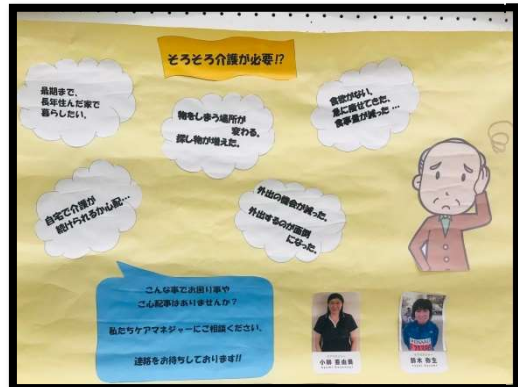 そろそろ介護が必要!?
最期まで、
長年住んだ家で
暮らしたい。
物をしまう場所が
変わる。
探し物が増えた。
食欲がない、
急に痩せてきた。
食事量が減った…
自宅で介護が
続けられるか心配…
外出の機会が減った。
外出するのが面倒
になった。
こんな事でお困り事や
ご心配事はありませんか?
私たちケアマネジャーにご相談ください。
連絡をお待ちしております!!